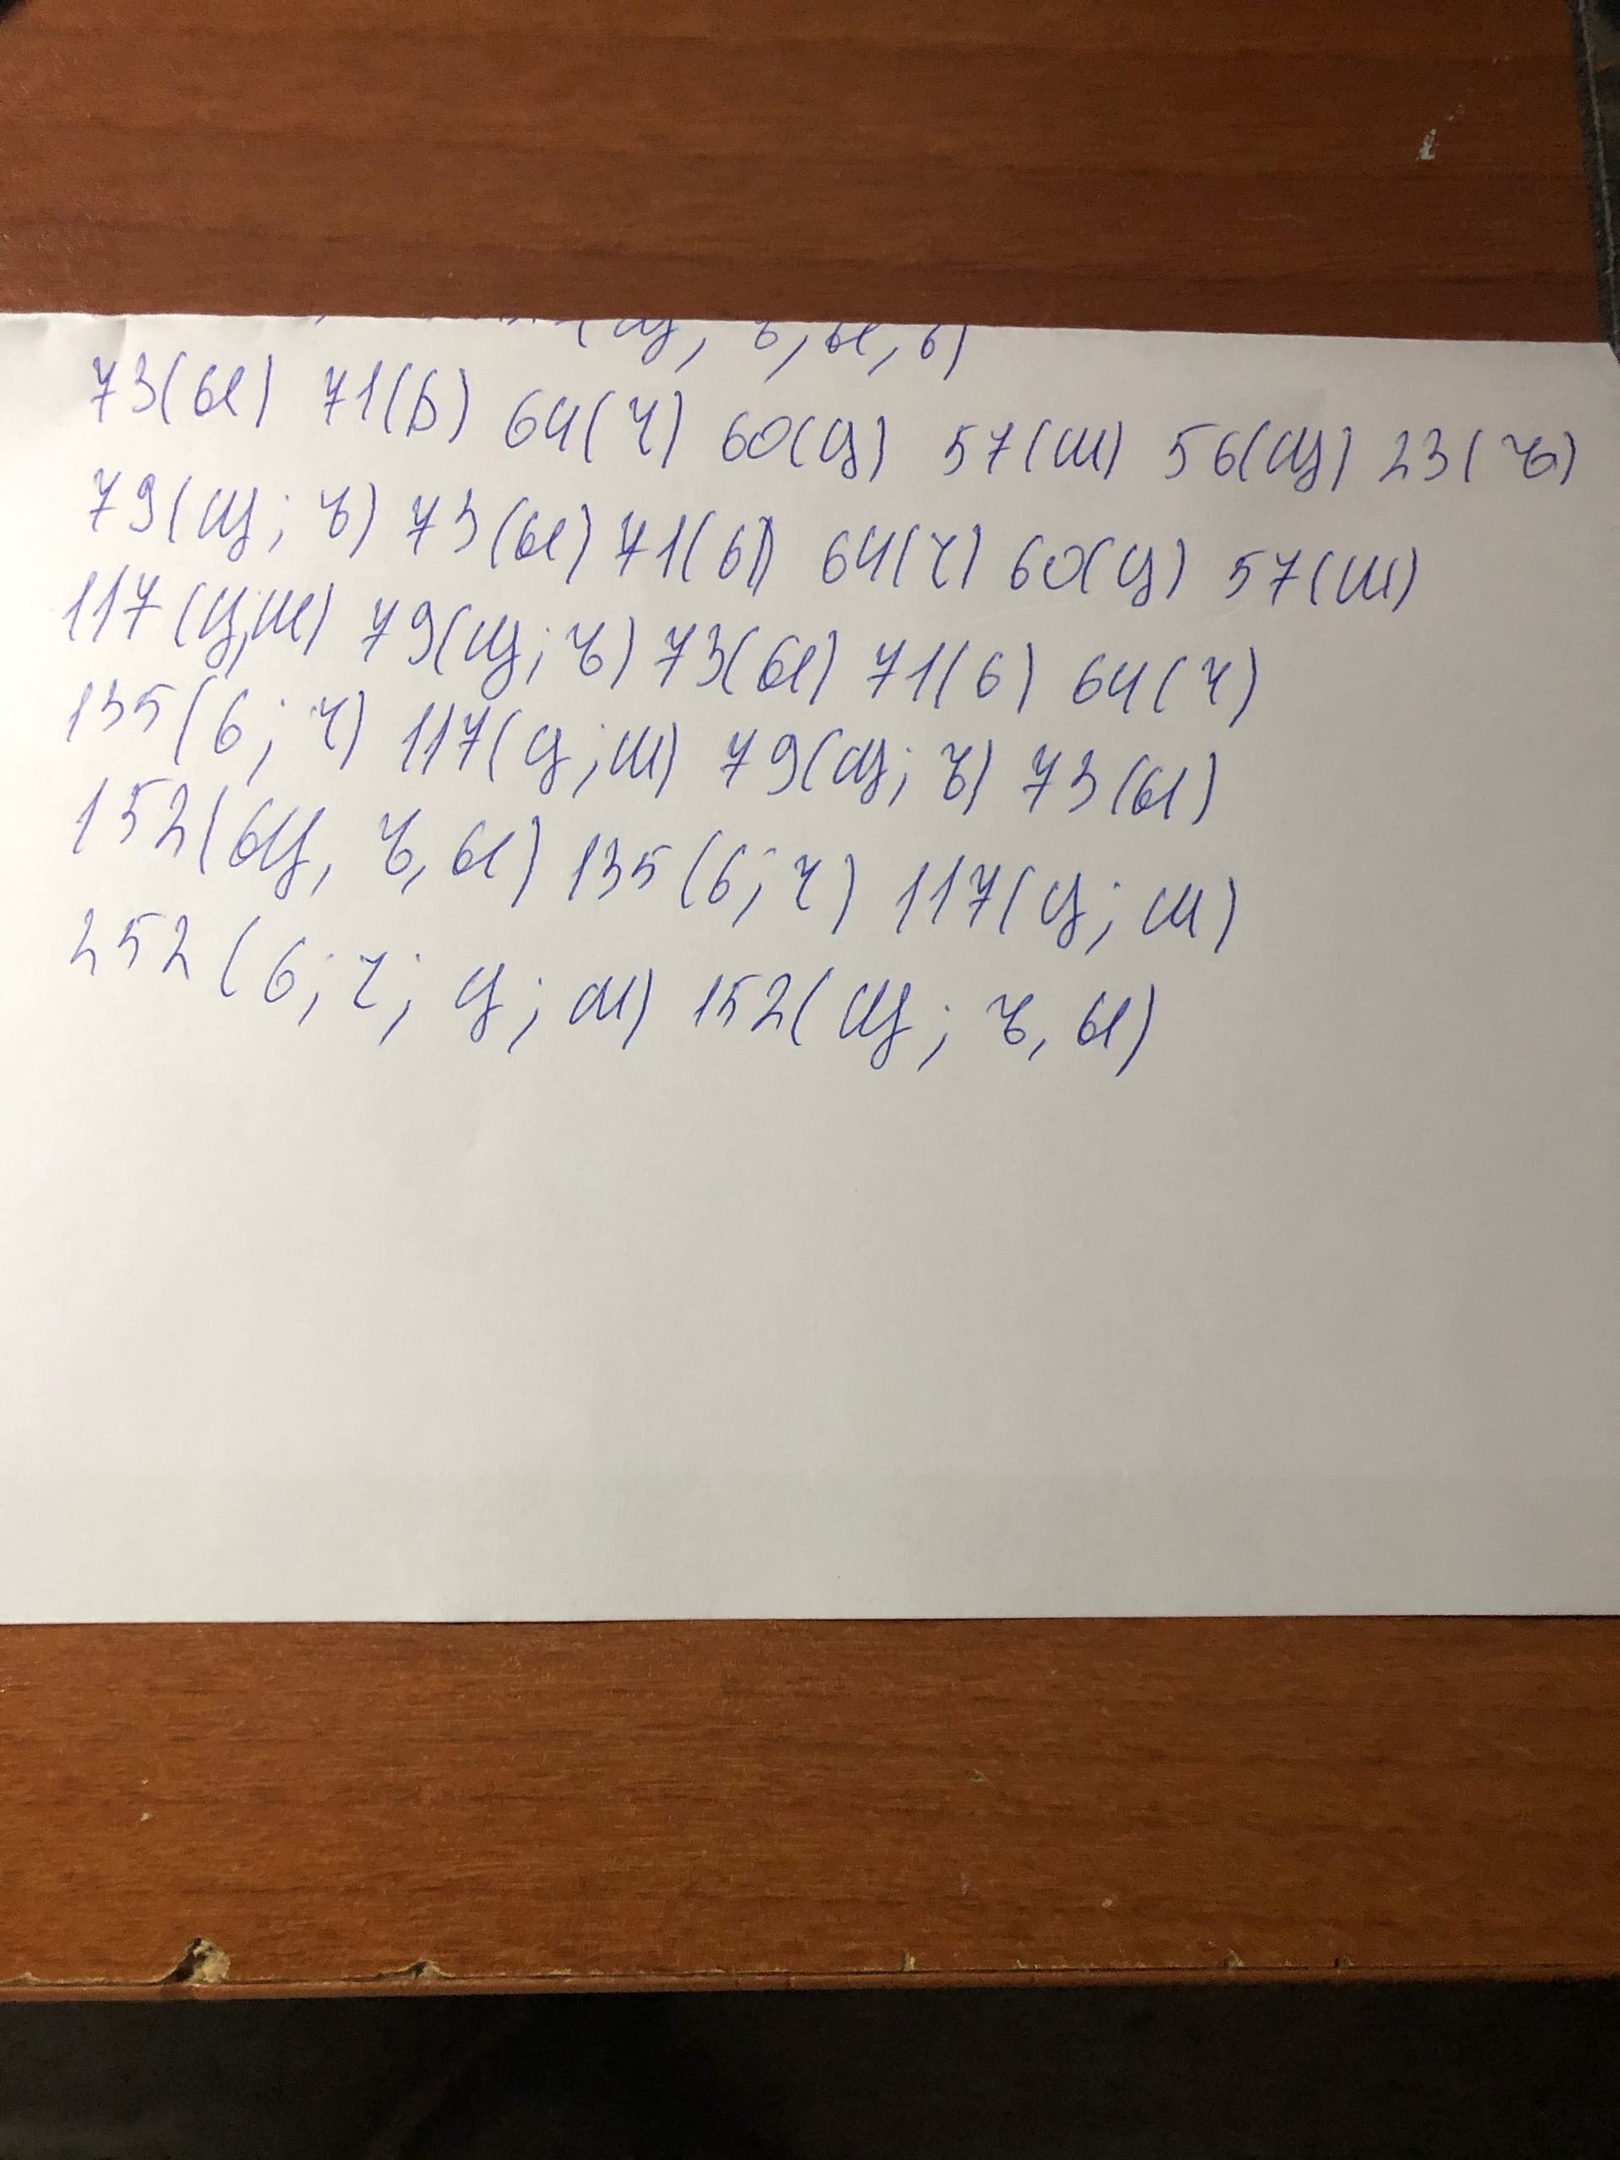 (щ, ъ, ы, ь)
73(ы) 71(ь) 64(ч) 60(ц) 57(ш) 56(щ) 23(ъ)
79(щ; ъ) 73(ы) 71(ь) 64(ч) 60(ц) 57(ш)
117(ц,ш) 79(щ; ъ) 73(ы) 71(ь) 64(ч)
135(ь; ч) 117(ц; ш) 79(щ; ъ) 73(ы)
152(щ, ъ, ы) 135(ь; ч) 117(ц; ш)
252(ь; ч; ц; ш) 152(щ; ъ, ы)